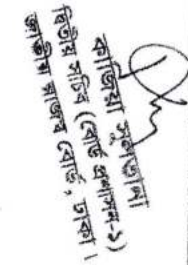 কাজিয়া সুলতানা
দ্বিতীয় সচিব (বোর্ড প্রশাসন-১)
জাতীয় রাজস্ব বোর্ড, ঢাকা।